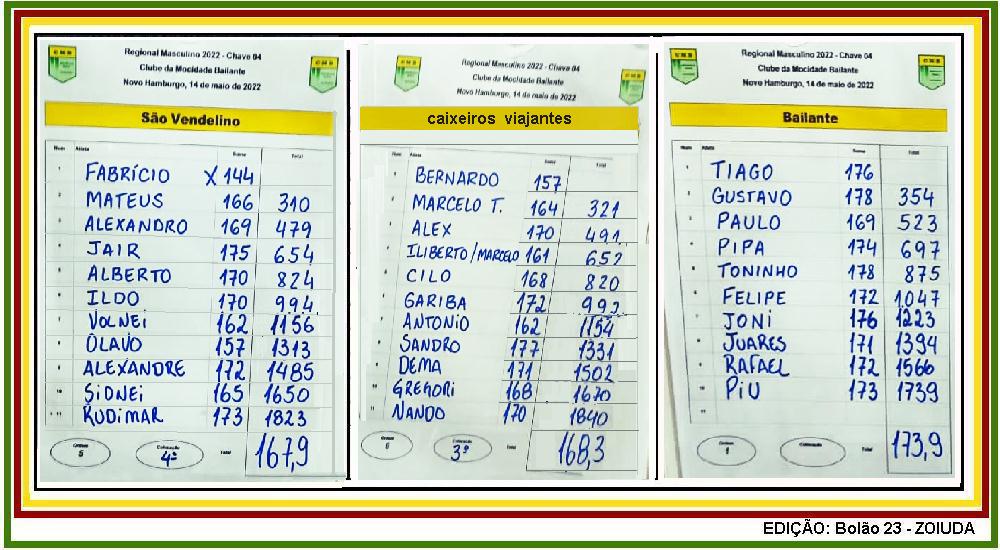 Regional Masculino 2022 - Chave 04
Clube da Mocidade Bailante
Novo Hamburgo, 14 de maio de 2022
São Vendelino
Num Atleta Soma Total
1 FABRÍCIO X 144
2 MATEUS 166 310
3 ALEXANDRO 169 479
4 JAIR 175 654
5 ALBERTO 170 824
6 ILDO 170 994
7 VOLNEI 162 1156
8 OLAVO 157 1313
9 ALEXANDRE 172 1485
10 SIDNEI 165 1650
11 RUDIMAR 173 1823
Ordem 5 Colocação 4º Total 167,9
Regional Masculino 2022 - Chave 04
Clube da Mocidade Bailante
Novo Hamburgo, 14 de maio de 2022
caixeiros viajantes
Num Atleta Soma Total
1 BERNARDO 157
2 MARCELO T. 164 321
3 ALEX 170 491
4 ILIBERTO/MARCELO 161 652
5 CILO 168 820
6 GARIBA 172 992
7 ANTONIO 162 1154
8 SANDRO 177 1331
9 DEMA 171 1502
10 GREGORI 168 1670
11 NANDO 170 1840
Ordem 6 Colocação 3º Total 168,3
Regional Masculino 2022 - Chave 04
Clube da Mocidade Bailante
Novo Hamburgo, 14 de maio de 2022
Bailante
Num Atleta Soma Total
1 TIAGO 176
2 GUSTAVO 178 354
3 PAULO 169 523
4 PIPA 174 697
5 TONINHO 178 875
6 FELIPE 172 1.047
7 JONI 176 1223
8 JUARES 171 1394
9 RAFAEL 172 1566
10 PIU 173 1739
11
Ordem 1 Colocação Total 173,9
EDIÇÃO: Bolão 23 - ZOIUDA